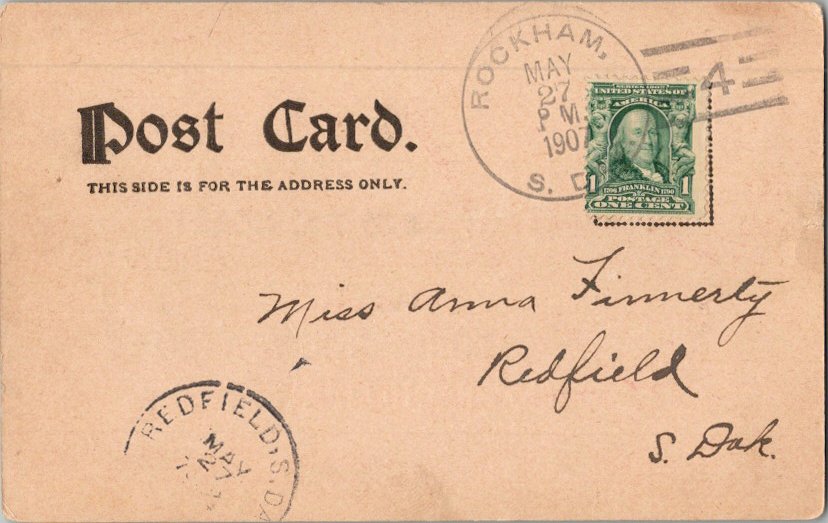 ROCKHAM,
MAY
27
P M.
1907
S. D
4
SERIES 1902
UNITED STATES OF
AMERICA
1 1706 FRANKLIN 1790 1
POSTAGE
ONE CENT
Post Card.
THIS SIDE IS FOR THE ADDRESS ONLY.
Miss Anna Finnerty
Redfield
S. Dak.
REDFIELD, S. DA
MAY
27